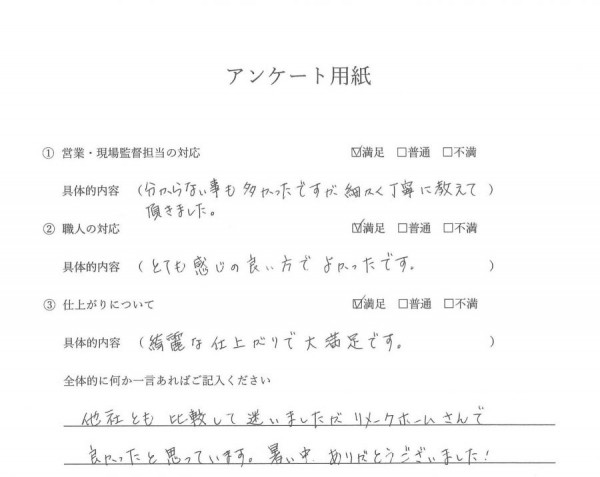 アンケート用紙
① 営業・現場監督担当の対応 ☑満足 □普通 □不満
具体的内容 (分からない事も多かったですが細かく丁寧に教えて)
頂きました。
② 職人の対応 ☑満足 □普通 □不満
具体的内容 (とても感じの良い方でよかったです。)
③ 仕上がりについて ☑満足 □普通 □不満
具体的内容 (綺麗な仕上がりで大満足です。)
全体的に何か一言あればご記入ください
他社とも比較して迷いましたがリメークホームさんで
良かったと思っています。暑い中、ありがとうございました!